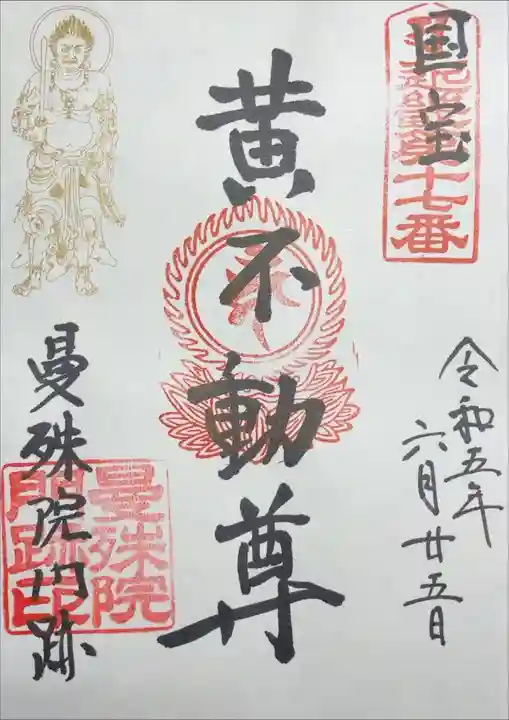 国宝
十七番
令和五年
六月廿五日
黄不動尊
曼殊院門跡
曼殊院
門跡印